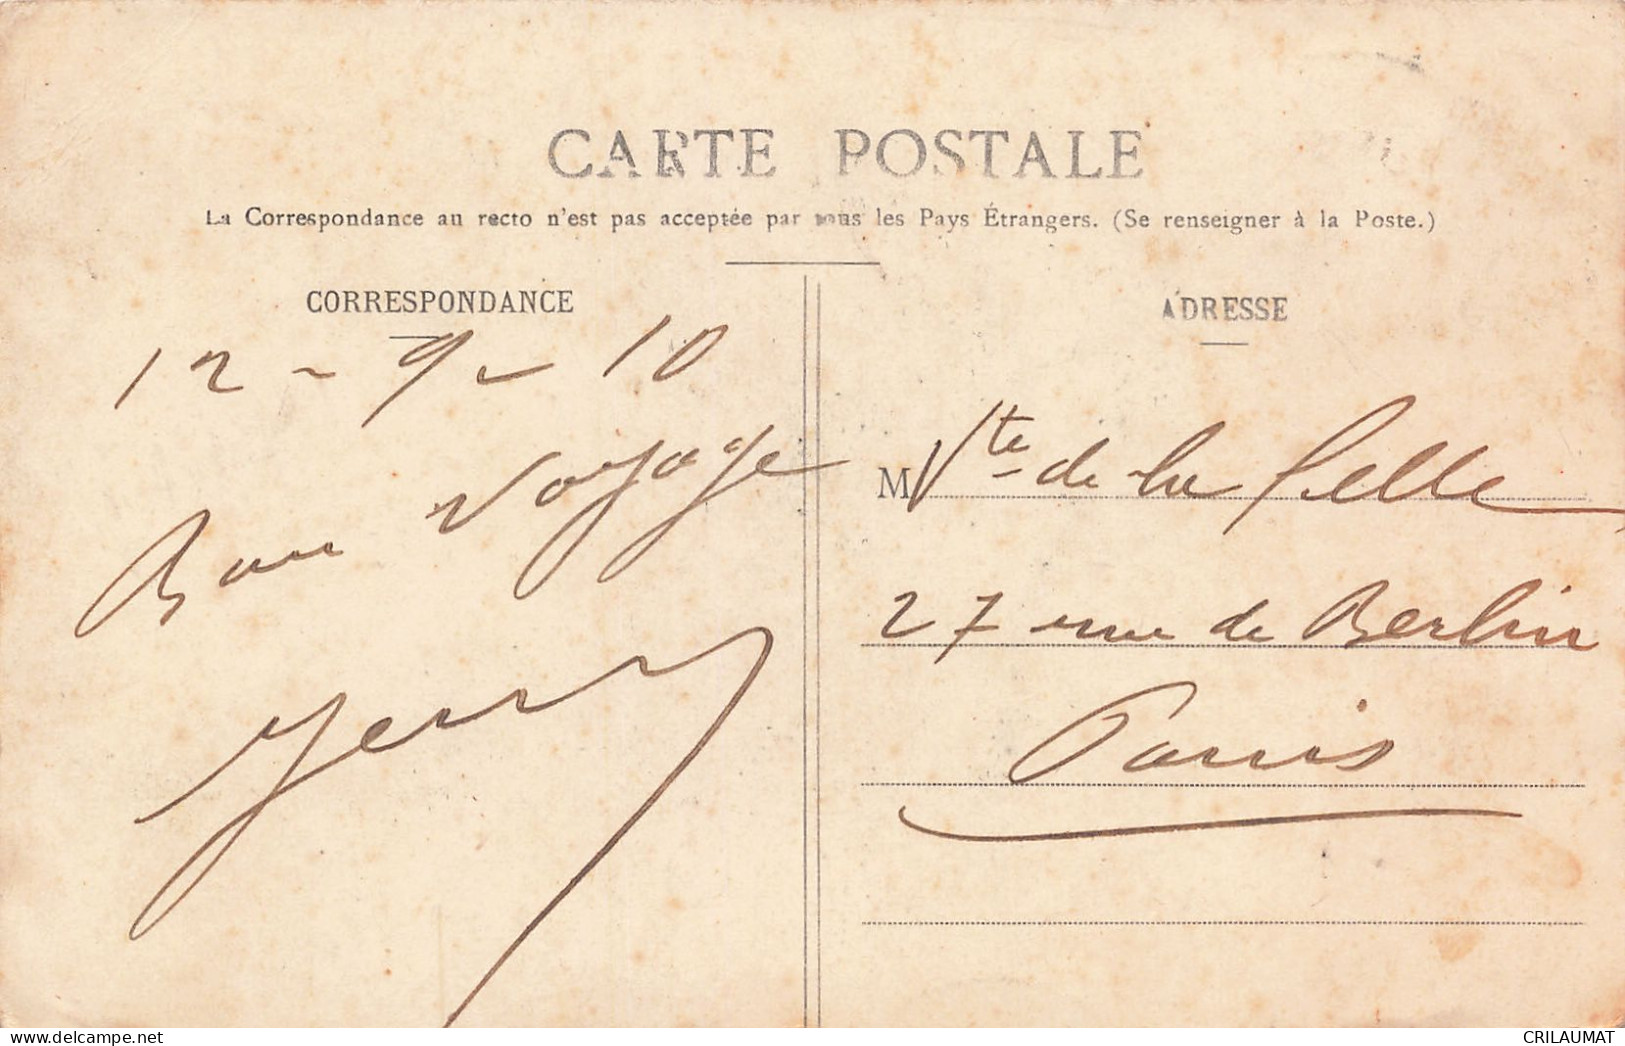 CARTE POSTALE
La Correspondance au recto n'est pas acceptée par tous les Pays Étrangers. (Se renseigner à la Poste.)
CORRESPONDANCE
12 - 9 - 10
Bon voyage
ADRESSE
M Vte de la Selle
27 rue de Berlin
Paris
CRILAUMAT